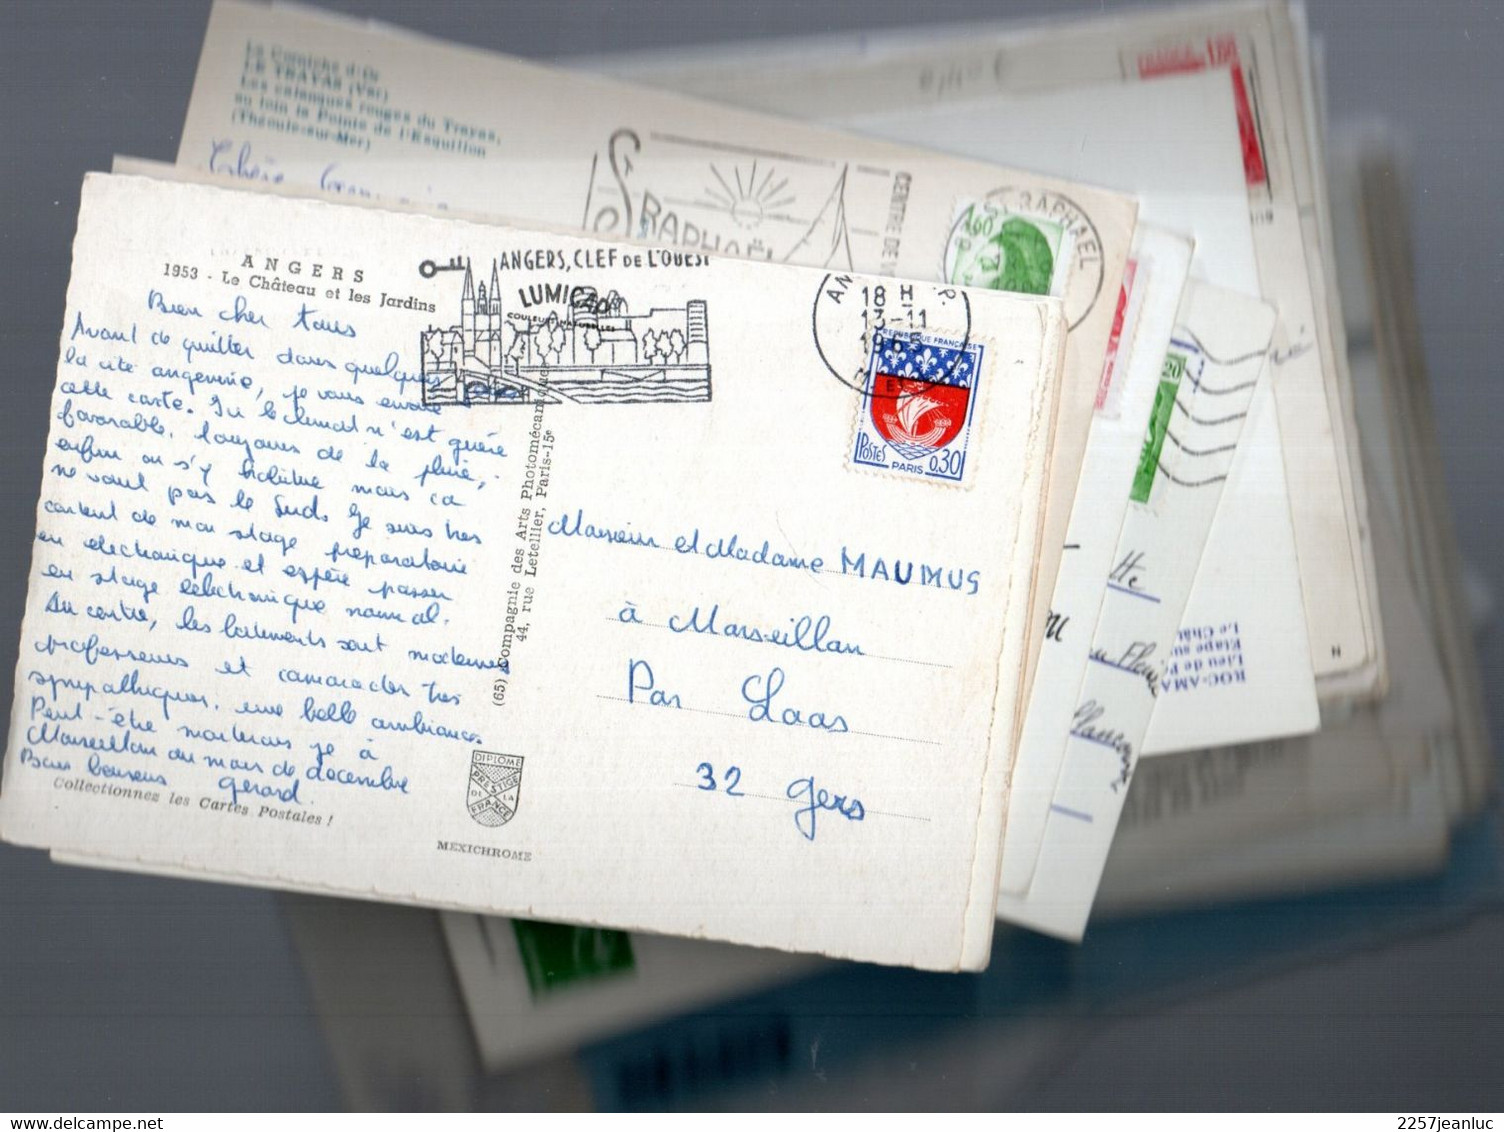 La Corniche d'Or
LE TRAYAS (Var)
Les calanques rouges du Trayas,
au loin la Pointe de l'Esquillon
(Théoule-sur-Mer)
St RAPHAËL
CENTRE DE
ST RAPHAEL
1,60
1,60
2,20
ANGERS
1953 - Le Château et les Jardins
ANGERS, CLEF DE L'OUEST
LUMICAP
COULEURS NATURELLES
18 H
13-11
1965
REPUBLIQUE FRANÇAISE
POSTES PARIS 0,30
Bien cher tous
Avant de quitter dans quelques
la cité angevine, je vous envoie
cette carte. Ici le climat n'est guère
favorable, toujours de la pluie,
enfin on s'y habitue mais ça
ne vaut pas le Sud. Je suis très
content de mon stage préparatoire
en électronique et espère passer
en stage électronique normal.
Au centre, les bâtiments sont modernes
professeurs et camarades très
sympathiques, une belle ambiance.
Peut-être monterais je à
Marseillan au mois de décembre
Bons baisers gérard.
Collectionnez les Cartes Postales !
(65) Compagnie des Arts Photomécaniques
44, rue Letellier, Paris-15e
DIPLOME
PRESTIGE
DE LA
FRANCE
MEXICHROME
Monsieur et Madame MAUMUS
à Marseillan
Par Laas
32 Gers
ROC-AMA
Lieu de P
Etape su
Le Chât
N
2257jeanluc